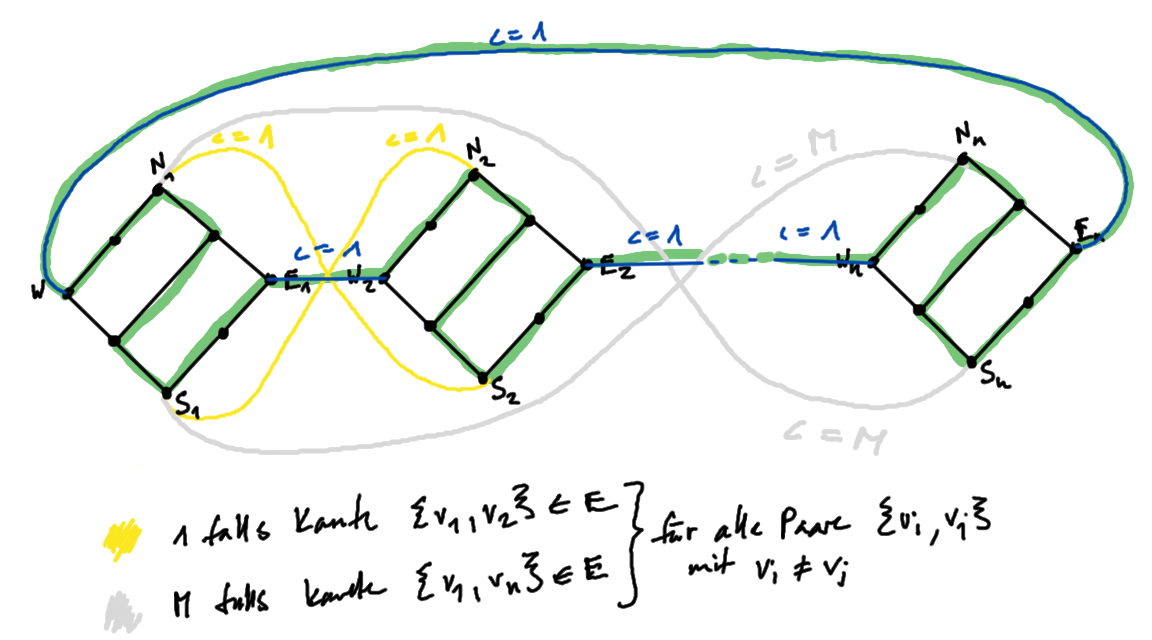 c = 1
N₁
c = 1
c = 1
N₂
c = M
Nₙ
W
c = 1
E₁
W₂
c = 1
E₂
c = 1
Wₙ
Eₙ
S₁
S₂
Sₙ
c = M
1 falls Kante {v₁, v₂} ∈ E
M falls Kante {v₁, vₙ} ∈ E
für alle Paare {vᵢ, vⱼ}
mit vᵢ ≠ vⱼ